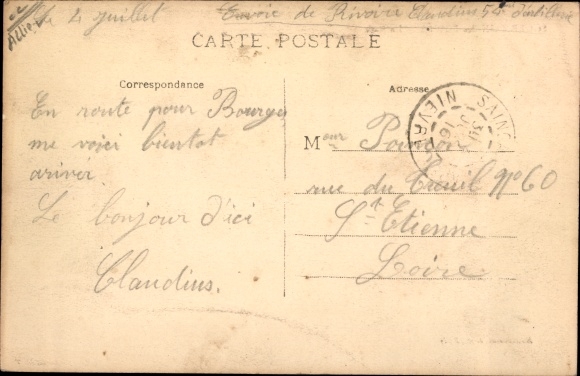 Le 2 juillet Envoie de Rivoire Claudius 54e d'artillerie
CARTE POSTALE
Correspondance
Adresse
En route pour Bourges
me voici bientot
ariver
Le bonjour d'ici
Claudius.
Mour
rue du Treuil No 60
St Etienne
Loire
NIEVRE